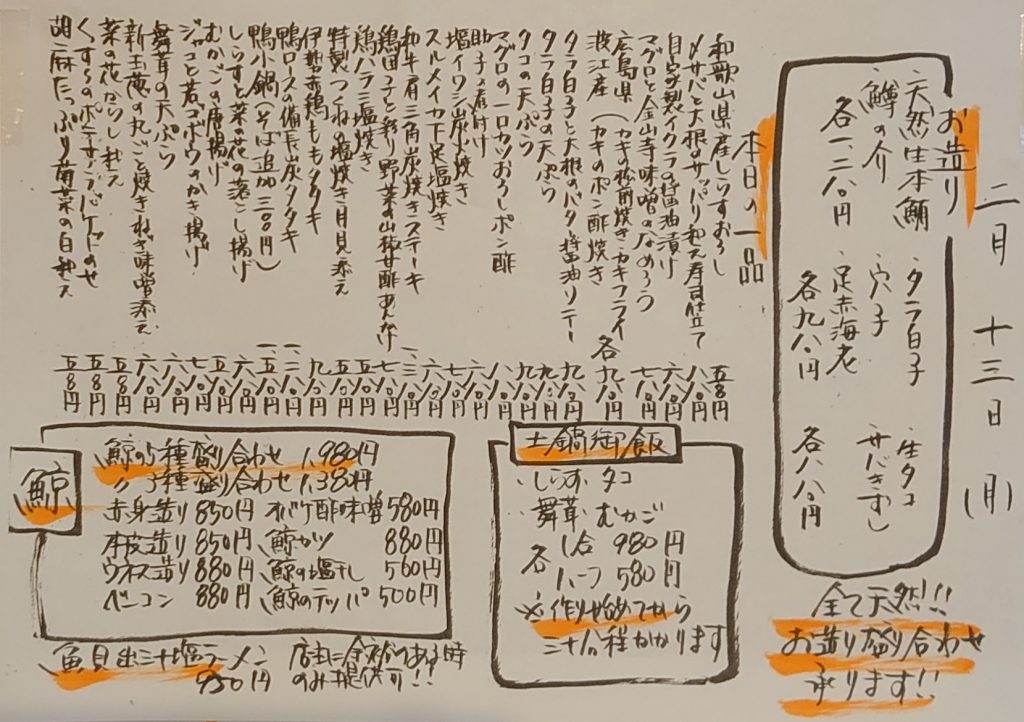 二月十三日(月)
お造り
天然生本鮪
鱒の介
各一、二八〇円
タラ白子
穴子
足赤海老
各九八〇円
生タコ
サバきずし
各八八〇円
全て天然!!
お造り盛り合わせ
承ります!!
本日の一品
和歌山県産しらすおろし 五八〇円
〆サバと大根のサッパリ和え寿司仕立て 八八〇円
自家製イクラの醤油漬け
マグロと金山寺味噌のなめろう
広島県 (カキの松前焼き・カキフライ
波江産 (カキのポン酢焼き 各九八〇円
タラ白子と大根のバタ醤油ソテー
タラ白子の天ぷら
タコの天ぷら
マグロの一口カツおろしポン酢
助子の煮付け
塩イワシ炭火焼き
スルメイカ下足塩焼き
和牛肩三角炭焼きステーキ
鶏団子と彩り野菜の山椒甘酢あんかけ
鶏ハラミ塩焼き
特製つくねの塩焼き月見添え
伊勢赤鶏ももタタキ
鴨ロースの備長炭タタキ
鴨小鍋(そば追加三〇〇円)
しらすと菜の花の落とし揚げ
むかごの唐揚げ
ジャコと若ゴボウのかき揚げ
舞茸の天ぷら
新玉葱の丸ごと焼きねぎ味噌添え 五八〇円
菜の花からし和え 五八〇円
くずし豆のポテサラバケットのせ 五八〇円
胡麻たっぷり菊菜の白和え 五八〇円
土鍋御飯
・しらす・タコ
・舞茸・むかご
各 1合 980円
ハーフ 580円
※作り始めてから
三十分程かかります
鯨
鯨の5種盛り合わせ 1,980円
〃 3種盛り合わせ 1,380円
赤身造り 850円 オバケ酢味噌 580円
本皮造り 850円 鯨かツ 880円
ウネス造り 880円 鯨の塩干し 560円
ベーコン 880円 鯨のテッパ 500円
魚貝出汁塩ラーメン 950円
店主に余裕のある時のみ提供可!!